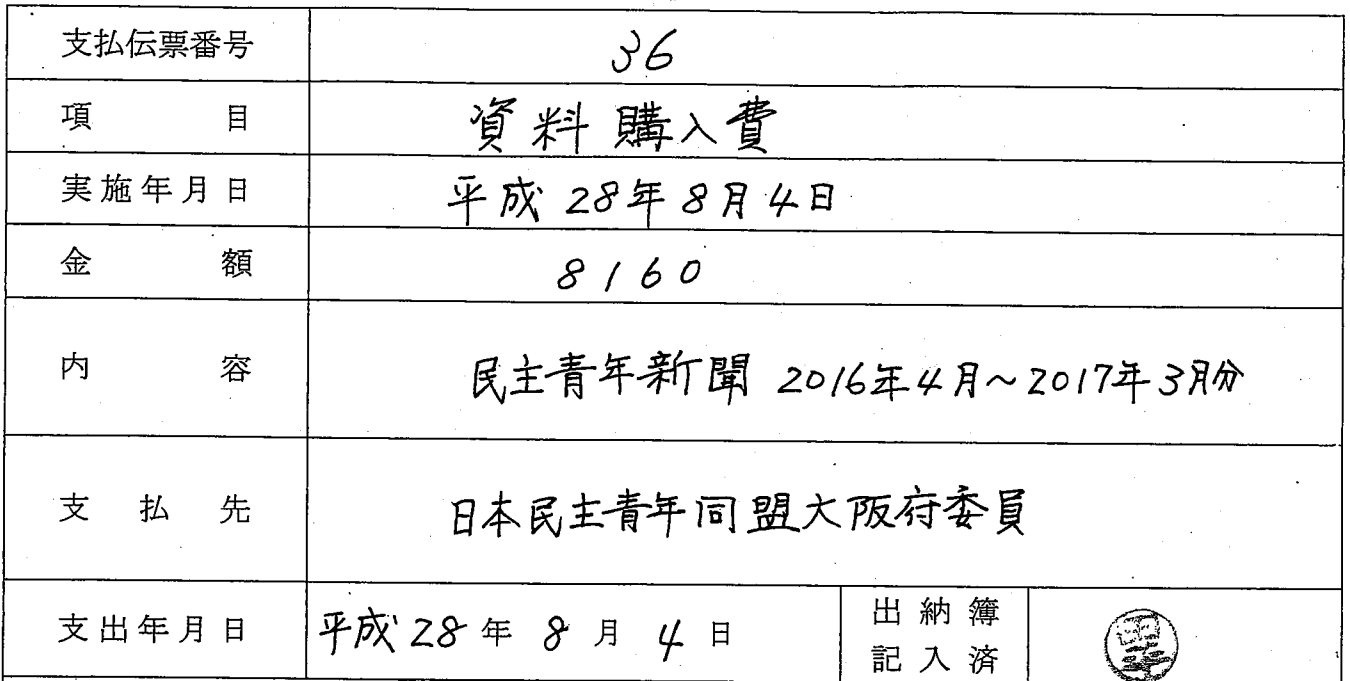 支払伝票番号 36
項目 資料購入費
実施年月日 平成28年8月4日
金額 8160
内容 民主青年新聞 2016年4月~2017年3月分
支払先 日本民主青年同盟大阪府委員
支出年月日 平成28年8月4日 出納簿
記入済